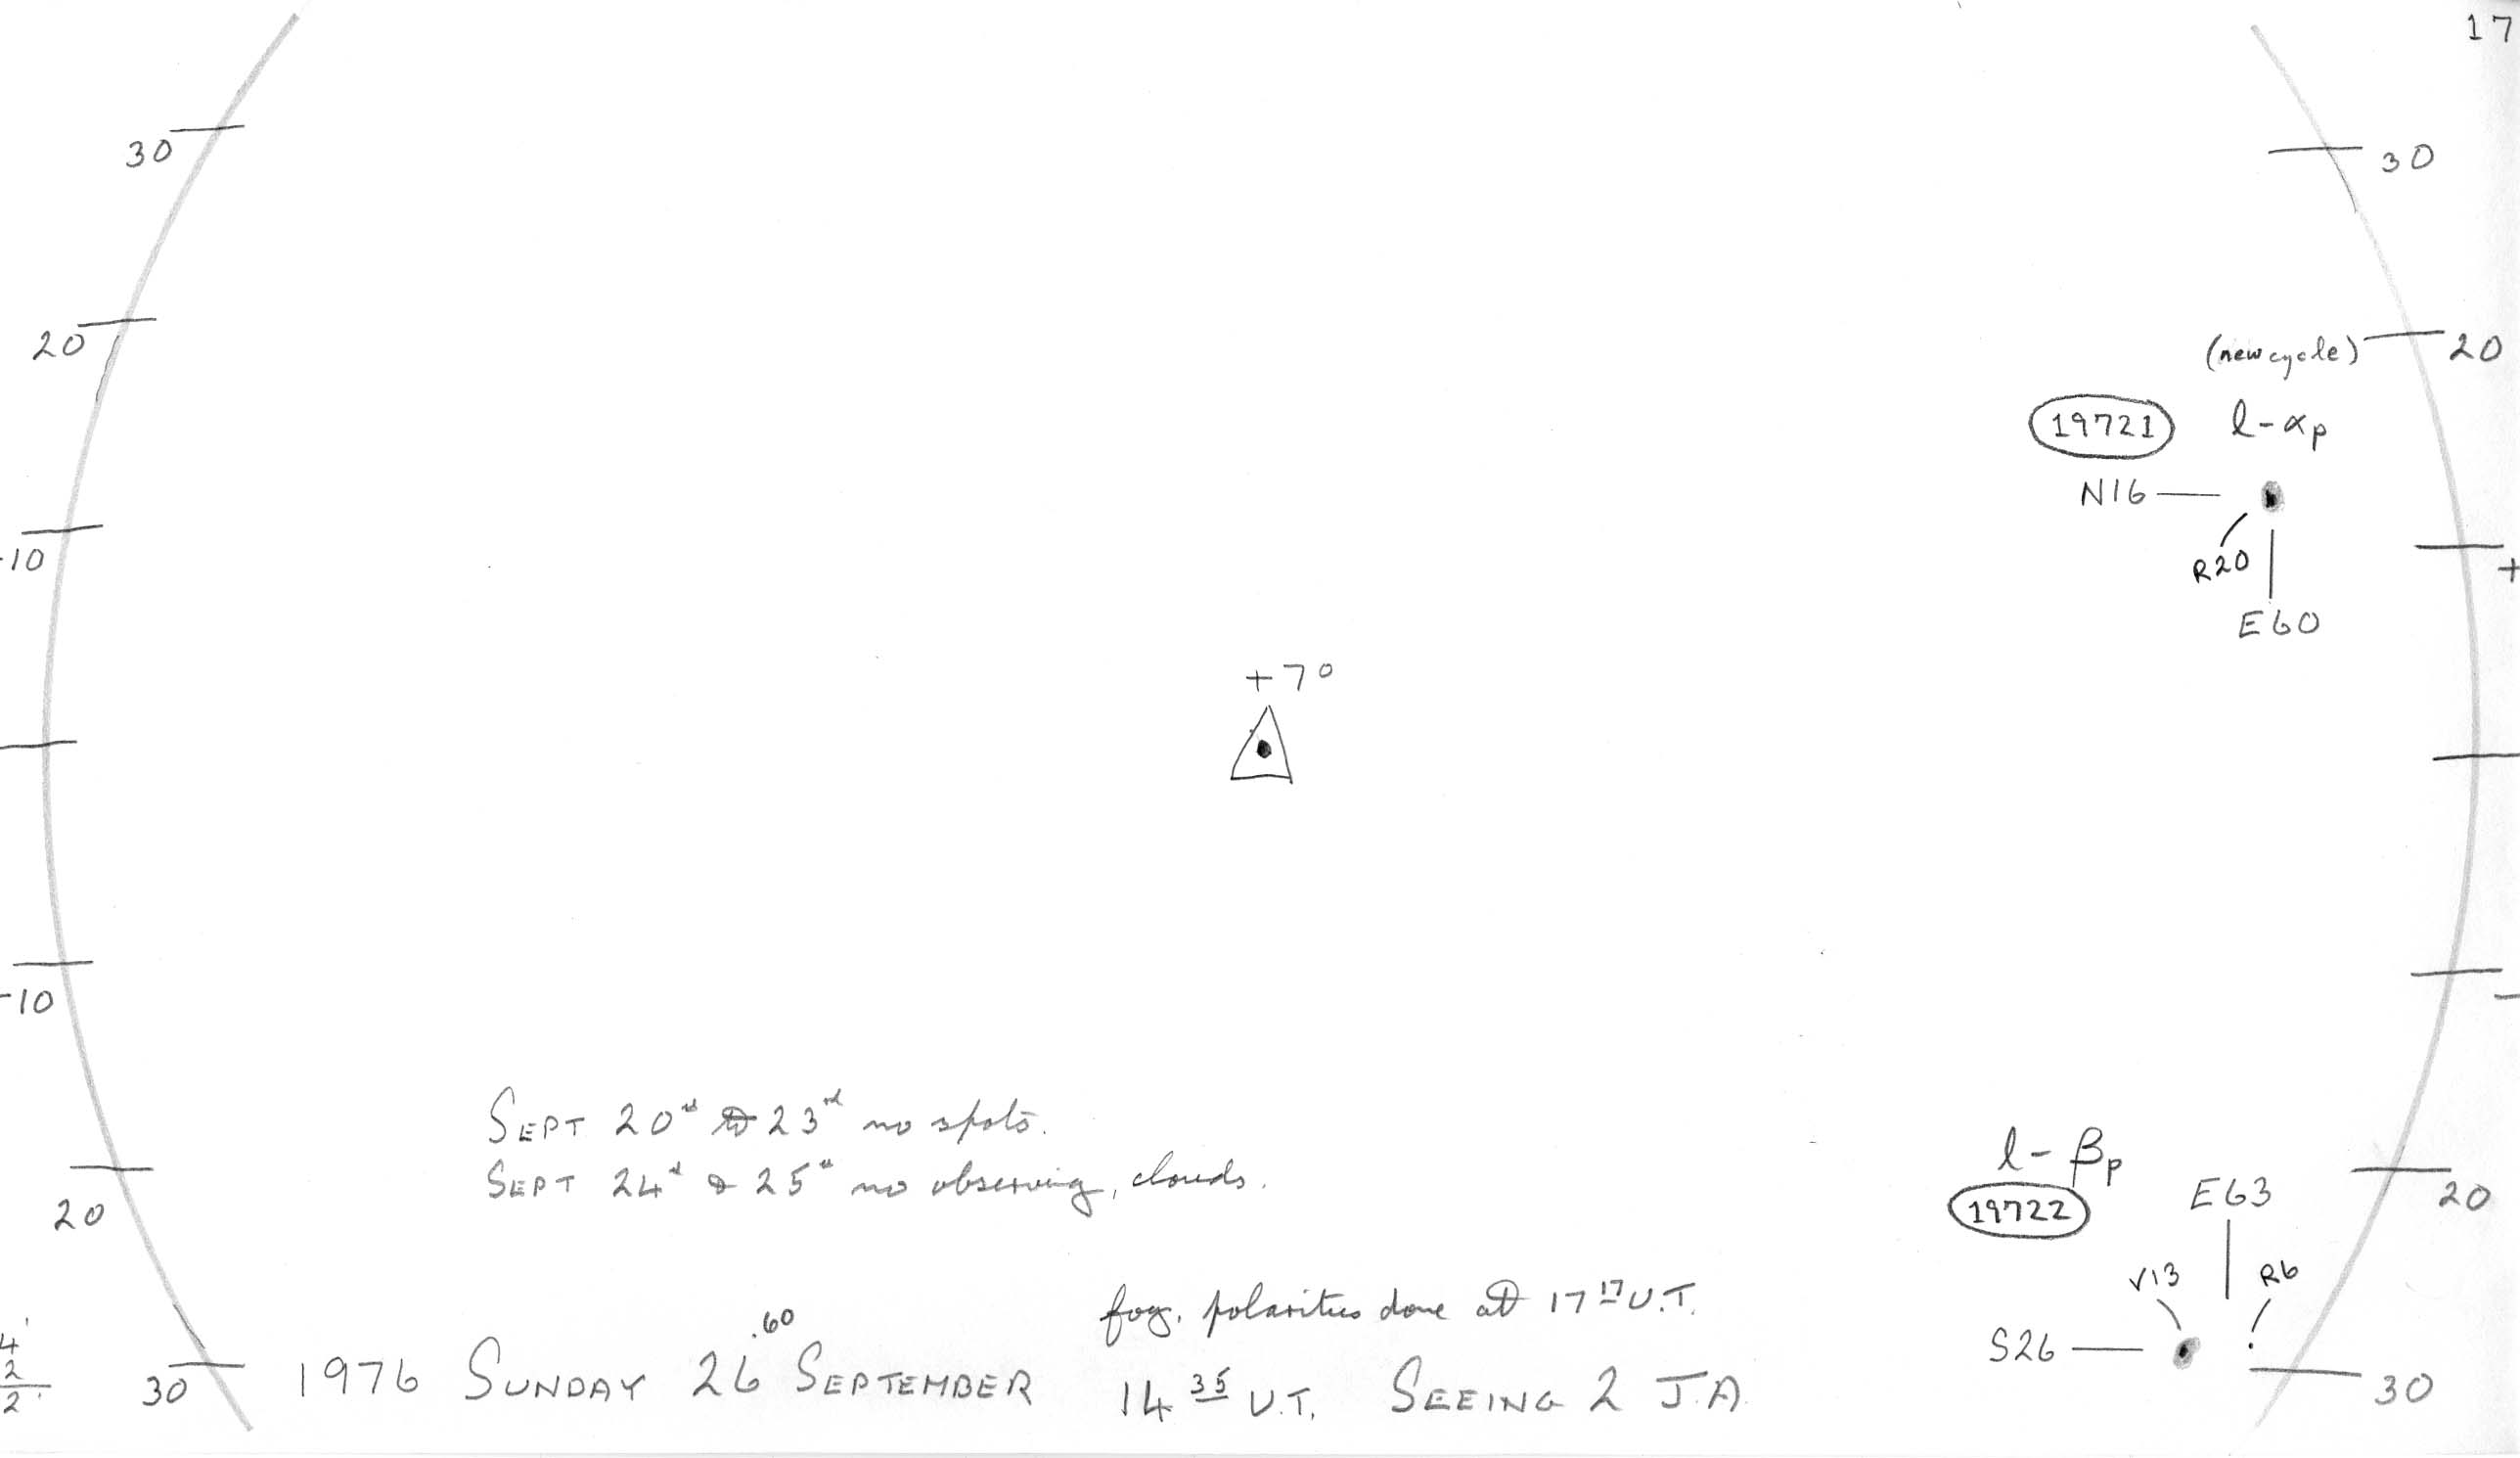 17
30
30
20
(new cycle)
20
19721
l-αp
N16
-10
R20
+
E60
+7°
-10
-
SEPT 20th to 23rd no spots.
SEPT 24th & 25th no observing, clouds.
l-βp
19722
E63
20
20
V13
R6
fog. polarities done at 17 17 U.T.
S26
4'
2
2'
30
1976 SUNDAY 26.60 SEPTEMBER
14 35 U.T. SEEING 2 J.A.
30